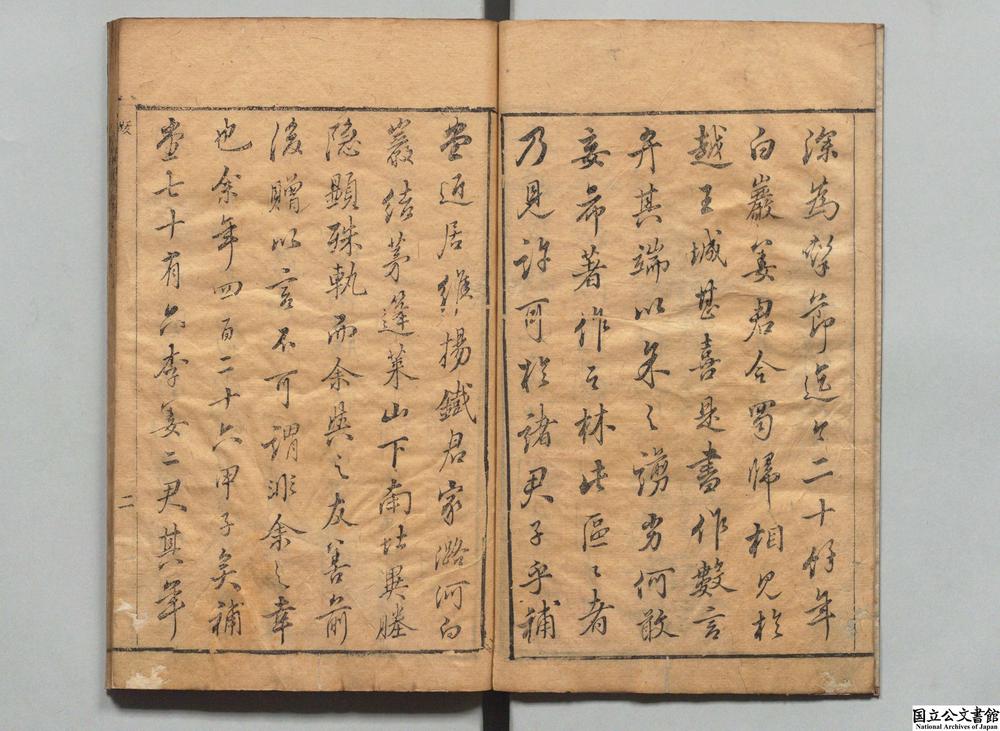 深為擊節迄今二十餘年
白巖姜君令蜀歸相見於
越王城甚喜是書作數言
弁其端以余之謭劣何敢
妄希著作之林此區區者
乃見許可於諸君子乎補
堂近居維揚鐵君家潞河白
巖結茅蓬萊山下南北異勝
隱顯殊軌而余與之友善前
後贈以言不可謂非余之幸
也余年四百二十六甲子矣補
堂七十有六李姜二君其年
跋
二
国立公文書館
National Archives of Japan